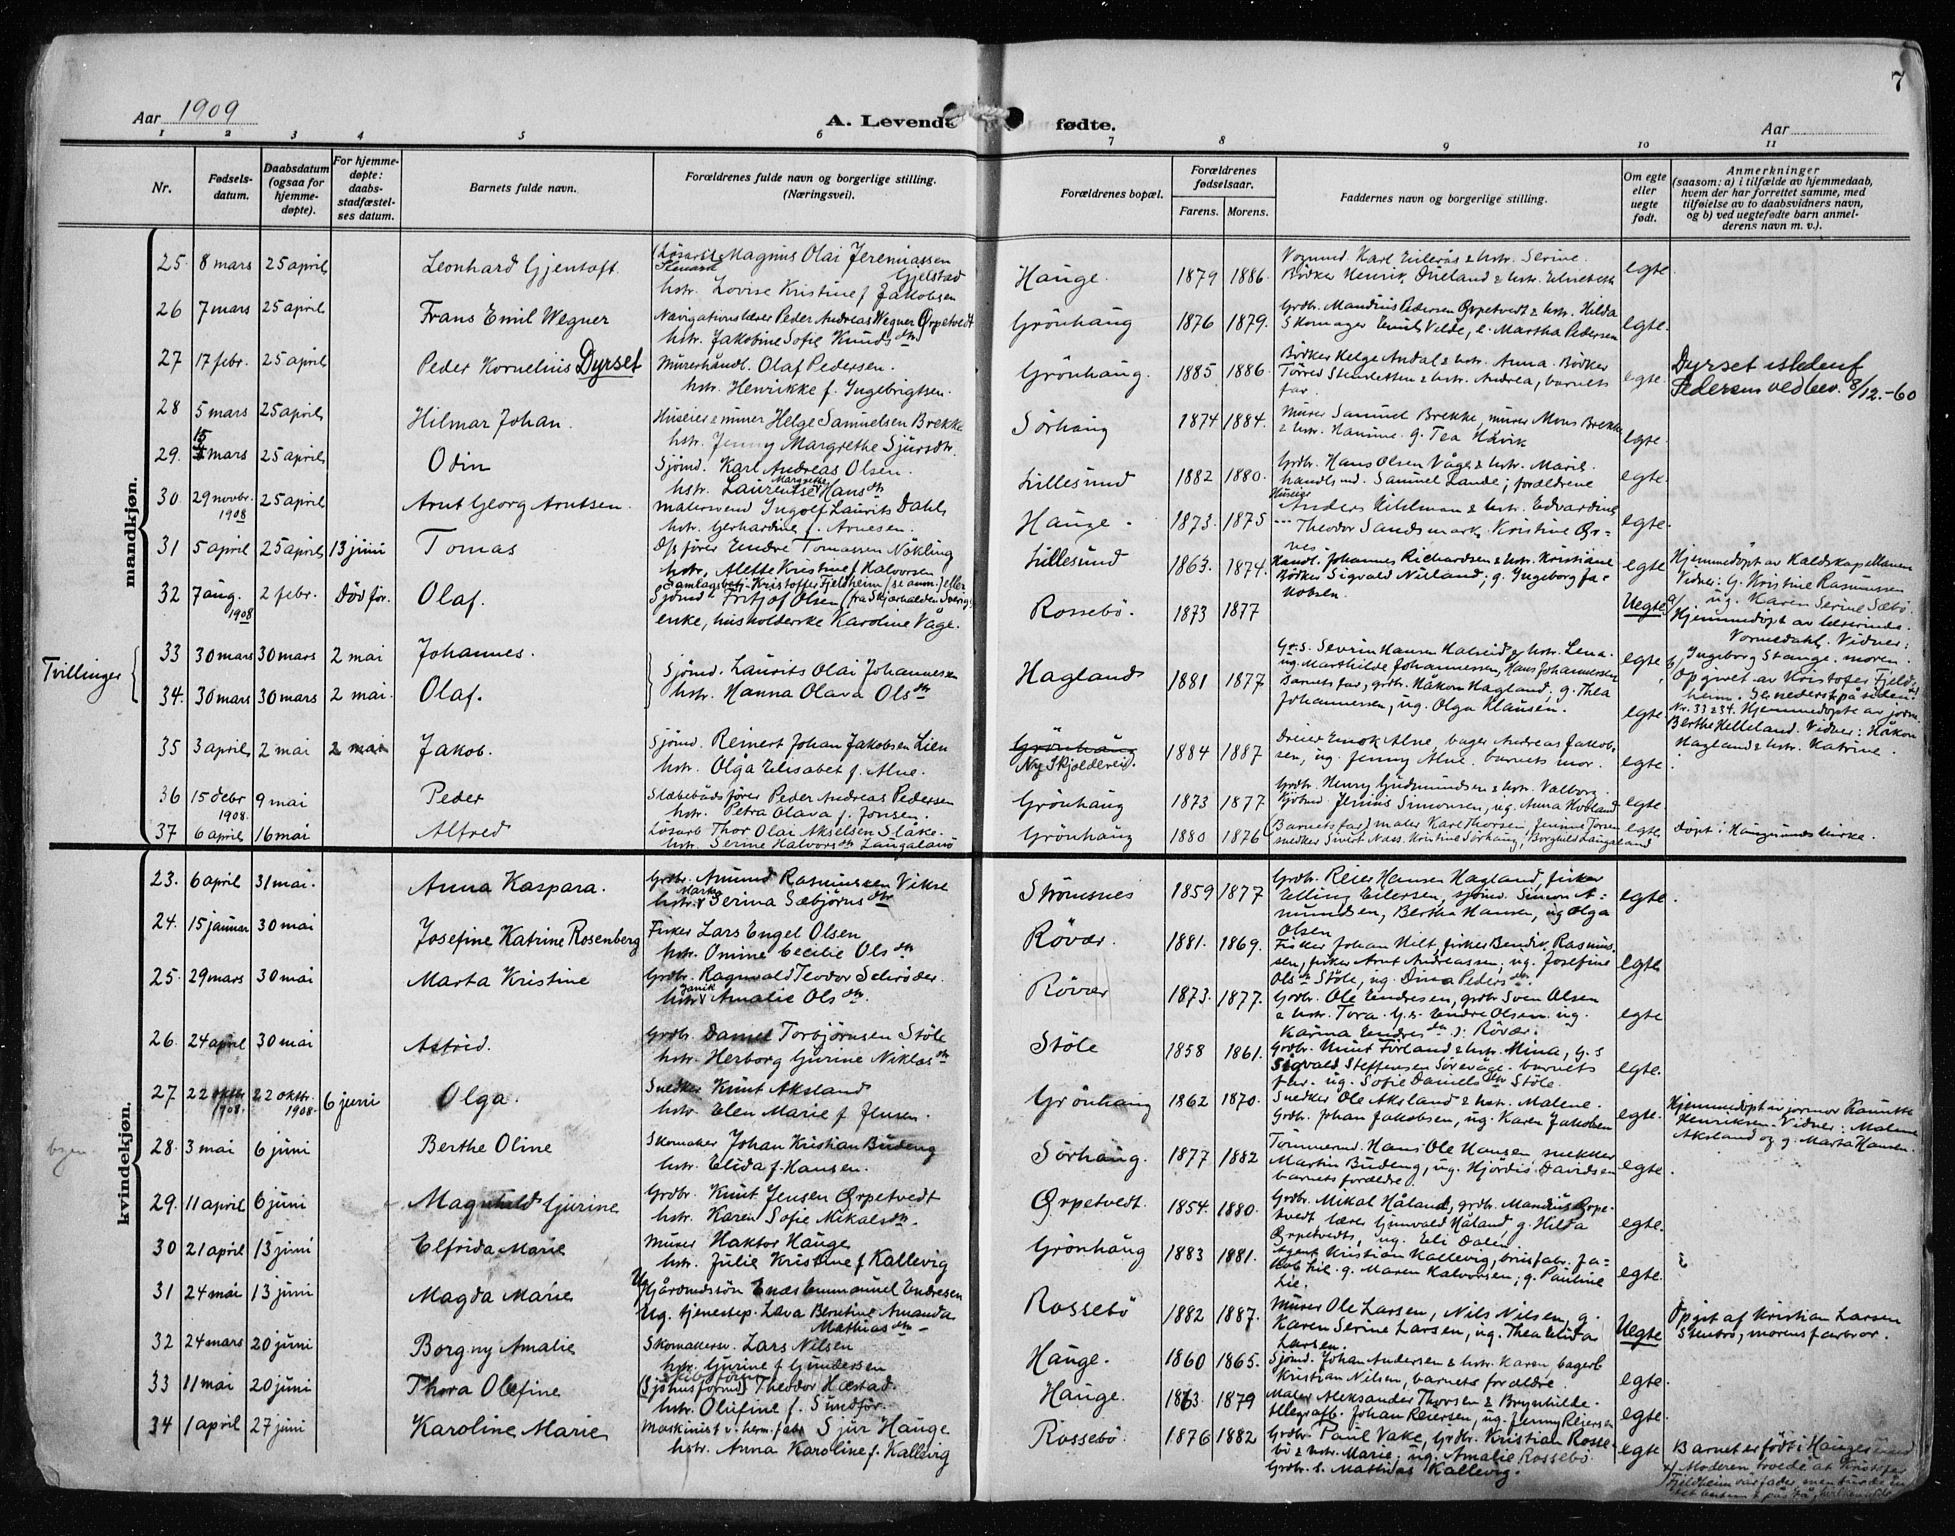 7
Aar 1909
A. Levende fødte.
Aar
1 2 3 4 5 6 7 8 9 10 11
Nr.
Fødsels-
datum.
Daabsdatum
(ogsaa for
hjemme-
døpte).
For hjemme-
døpte:
daabs-
stadfæstel-
ses datum.
Barnets fulde navn.
Forældrenes fulde navn og borgerlige stilling.
(Næringsvei).
Forældrenes bopæl.
Forældrenes
fødselsaar.
Farens. Morens.
Faddernes navn og borgerlige stilling.
Om egte
eller
uegte
født.
Anmerkninger
(saasom: a) i tilfælde av hjemmedaab,
hvem der har forrettet samme, med
tilføielse av to daabsvidners navn,
og b) ved uegtefødte barn anmel-
derens navn m. v.).
mandkjøn.
25. 8 mars 25 april Leonhard Gjentoft. Magnus Olai Jeremiassen
Gjelstad
hstr. Lovise Kristine f. Jakobsen
Hauge 1879 1886. egte.
26 7 mars 25 april Frans Emil Wegner Navigationslærer Peder Andreas Wegner Ørpetvedt
hstr. Jakobine Sofie Knudsdtr
Grönhaug 1876 1879. Grdbr. Mandius Pedersen Ørpetvedt & hstr. Hilda
Skomager Emil Velde, e. Martha Pedersen
egte.
27 17 febr. 25 april Peder Kornelius Dyrset Murerhåndl. Olaf Pedersen.
hstr. Henrikke f. Ingebrigtsen.
Grönhaug. 1885 1886. Bödker Helge Andal & hstr. Anna. Bödker
& hstr. Andrea, barnets
far.
egte. Dyrset istedenf
Pedersen ved bev. 8/12.-60
28 5 mars 25 april Hilmar Johan. Huseier & murer Helge Samuelsen Brekke
hstr. Jenny Margrethe Sjursdtr.
Sörhaug 1874 1884. Murer Samuel Brekke, murer Mons Brekke
& hstr. Hanine. g. Tea Håvik
egte.
29. 15 mars 25 april Odin Sjömd. Karl Andreas Olsen.
hstr. Laurentse Margrethe Hansdtr
Lillesund 1882 1880. Grdbr. Hans Olsen Våge & hstr. Marie.
handlsmd. Samuel Lande; forældrene
egte.
30 29 novbr. 1908 25 april Arnt Georg Arntsen. Malersvend Ingolf Laurits Dahl
hstr. Gerhardine f. Arnesen.
Hauge. 1873. 1875 Huseier
Anders Kihlman & hstr. Edvardine
Theodor Sandsmark, Kristine
egte.
31 5 april 25 april 13 juni Tomas D/s fører Endre Tomassen Nökling
hstr. Alette Kristine f. Halvorsen
Lillesund 1863. 1874. Handl. Johannes Richardsen & hstr. Kristiane
Bödker Sigvald Nilland; g. Ingeborg Ja-
kobsen.
egte Hjemmedöpt av Kaldskapellanen
Vidner: g. Kristine Rasmussen
ug. Karen Serine Sæbö.
32 7 aug. 1908 2 febr. Död för. Olaf. Samlagsbetj. Kristoffer Fjeldheim (se anm.) eller
Sjömd. Fritjof Olsen (fra Skjærhalden Sverig)
enke, husholderske Karoline Våge.
Rossebö. 1873 1877 Uegte a/ Hjemmedöpt av lærerinde
Vormedahl. Vidner:
Ingeborg Stange, moren.
b/ Opgivet av Kristofer Fjeld-
heim. Se nederst på siden.
Tvillinger
33 30 mars 30 mars 2 mai Johannes.
34. 30 mars 30 mars 2 mai. Olaf. Sjömd. Laurits Olai Johannessen
hstr. Hanna Olava Olsdtr
Hagland 1881 1877 G.s. Severin Hansen Halseid & hstr. Lena.
ug. Marthilde Johannessen, Hans Johannessen
Barnets far, grdbr. Håkon Hagland; g. Thea
Johannessen, ug. Olga Klausen.
egte
egte. Nr. 33 & 34. Hjemmedöpte av jordm.
Berthe Helleland. Vidner: Håkon
Hagland & hstr. Katrine.
35 3 april 2 mai 2 mai Jakob. Sjömd. Reinert Johan Jakobsen Lien
hstr. Olga Elisabet f. Alne.
Grönhaug
Ny Skjoldereid. 1884 1887 Dreier Enok Alne, bager Andreas Jakob-
sen, ug. Jenny Alne. barnets mor.
egte.
36 15 debr 1908. 9 mai Peder Slæbebådsförer Peder Andreas Pedersen
hstr. Petra Olava f. Jonsen.
Grönhaug 1873 1877 Grdbr. Henry Gudmundsen & hstr. Valborg.
Simonsen, ug. Anna Hovland
egte.
37 6 april 16 mai Alfred Lösarb Thor Olai Akselsen Släke.
hstr. Serine Halvorsdtr Langaland
Grönhaug 1880 1876 (Barnets far) maler Karl Thorsen, Jenine Torsen
snedker Smut Nass, Kristine Sörhaug, Borghild Langaland
egte döpt i Haugesunds kirke.
kvindekjøn.
23. 6 april 31 mai. Anna Kaspara. Grdbr. Amund Rasmussen Vikse
hstr. Marta Serina Sæbjörnsdtr
Strömsnes 1859 1877 Grdbr. Reier Hansen Hagland, fisker
Elling Eilersen, sjömd. Simon A-
mundsen, Bertha Hansen, ug Olga
Olsen
egte.
24. 15 januar 30 mai Josefine Katrine Rosenberg Fisker Lars Engel Olsen
hstr. Omine Cecilie Olsdtr
Rövær. 1881. 1869. Fisker Johan Hilt, fisker Bendix Rasmus-
sen, fisker Arnt Andreassen; ug. Josefine
Olsdtr Stöle, ug. Dina Pedersdtr.
egte
25. 29 mars 30 mai Marta Kristine Grdbr. Ragnvald Teodor Schröder
hstr. Janik Amalie Olsdtr.
Rövær 1873. 1877. Grdbr. Ole Endresen, grdbr Sven Olsen
& hstr. Tora. G.s. Endre Olsen ug.
Karina Endresdtr. Rövær.
egte
26. 24 april 30 mai Astrid. Grdbr. Daniel Torbjörnsen Stöle
hstr. Herborg Gurine Niklasdtr
Stöle 1858 1861. Grdbr. Knut Förland & hstr. Mina, g.s
Sigvald Steffensen Sörevåge. barnets
far. ug. Sofie Danielsdtr Stöle.
egte.
27 22 oktbr 1908. 22 oktbr. 1908. 6 juni Olga. Snedker Knut Aksland
hstr. Elen Marie f Jensen.
Grönhaug 1862 1870. Snedker Ole Aksland & hstr. Malene.
Grdbr. Johan Jakobsen, ug. Karen Jakobsen
egte. Hjemmedöpt av jormor Ranutte
Henriksen. Vidner: Malene
Aksland og g. Marta Hansen.
28. 3 mai 6 juni Berthe Oline Skomaker Johan Kristian Budeng
hstr. Elida f. Hansen.
Sörhaug. 1877 1882 Tömmermd. Hans Ole Hansen snekker
Martin Budeng, ug. Hjördis Davidsen
barnets forældre.
egte.
29. 11 april 6 juni Magnhild Gurine Grdbr. Knut Jensen Ørpetvedt
hstr. Karen Sofie Mikalsdtr.
Ørpetvedt 1854. 1880. Grdbr. Mikal Håland, grdbr. Mandius Ørpe-
tvedt lærer Gunvald Håland g. Hilda
Ørpetvedt, ug. Eli Dalen
egte.
30 21 april 13 juni Elfrida Marie Murer Haktor Hauge
hstr. Julie Kristine f Kallevig
Grönhaug 1883 1881. Agent Kristian Kallevig, brusfabr. Ja-
kob Lie. g. Maren Halvorsen; g. Pauline
Lie.
egte.
31 24 mai 13 juni Magda Marie Ug. gårdmdssön Enæs Emmanuel Endresen
Ug. tjenestep. Lava Berntine Amanda
Mathiasdtr.
Rossebö 1882 1887. Murer Ole Larsen, Nils Nilsen, g.
Karen Serine Larsen, ug. Thea Elida
Larsen.
Uegte Opgit af Kristian Larsen
Stenbrö, morens farbror.
32 24 mars 20 juni Borgny Amalie Skomakersv. Lars Nilsen
hstr. Gurine f Gundersen
Hauge. 1860 1865. Sjömd. Johan Andersen & hstr. Karen, bagerb.
Kristian Nilsen, barnets forældre.
egte.
33 11 mai 20 juni Thora Olefine (Sjöhusformd) Theodor Hæstad.
hstr. Olufine f. Sundför.
Hauge. 1863. 1879 Maler Aleksander Thorsen & Brynhilde.
telegrafb. Johan Reiersen, ug. Jenny Reiersen
egte.
34 1 april 27 juni Karoline Marie Maskinist v. herm. fabr Sjur Hauge
hstr. Anna Karoline f. Kallevig
Rossebö. 1876 1882 Grdbr. Paul Vake, Grdbr. Kristian Rosse-
bö & hstr. Marie; ug. Amalie Rossebö
Grdbr. s. Mathias Kallevig.
egte Barnet er födt i Haugesund
x) Moderen troede at Kristofer
Fjeldheim var fader, men